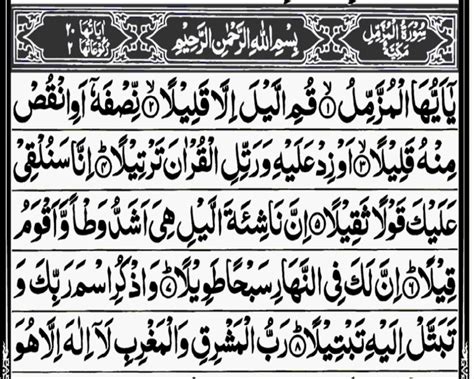 سُوْرَةُ الْمُزَّمِّلِ مَكِّيَّةٌ بِسْمِ اللهِ الرَّحْمٰنِ الرَّحِيْمِ اٰيَاتُهَا ٢٠ رُكُوْعَاتُهَا ٢
يٰۤاَيُّهَا الْمُزَّمِّلُ ۙ﴿۱﴾ قُمِ الَّيْلَ اِلَّا قَلِيْلًا ۙ﴿۲﴾ نِّصْفَهٗۤ اَوِ انْقُصْ
مِنْهُ قَلِيْلًا ۙ﴿۳﴾ اَوْ زِدْ عَلَيْهِ وَرَتِّلِ الْقُرْاٰنَ تَرْتِيْلًا ؕ﴿۴﴾ اِنَّا سَنُلْقِيْ
عَلَيْكَ قَوْلًا ثَقِيْلًا ﴿۵﴾ اِنَّ نَاشِئَةَ الَّيْلِ هِيَ اَشَدُّ وَطْاً وَّاَقْوَمُ
قِيْلًا ؕ﴿۶﴾ اِنَّ لَكَ فِي النَّهَارِ سَبْحًا طَوِيْلًا ؕ﴿۷﴾ وَاذْكُرِ اسْمَ رَبِّكَ وَ
تَبَتَّلْ اِلَيْهِ تَبْتِيْلًا ؕ﴿۸﴾ رَبُّ الْمَشْرِقِ وَالْمَغْرِبِ لَاۤ اِلٰهَ اِلَّا هُوَ